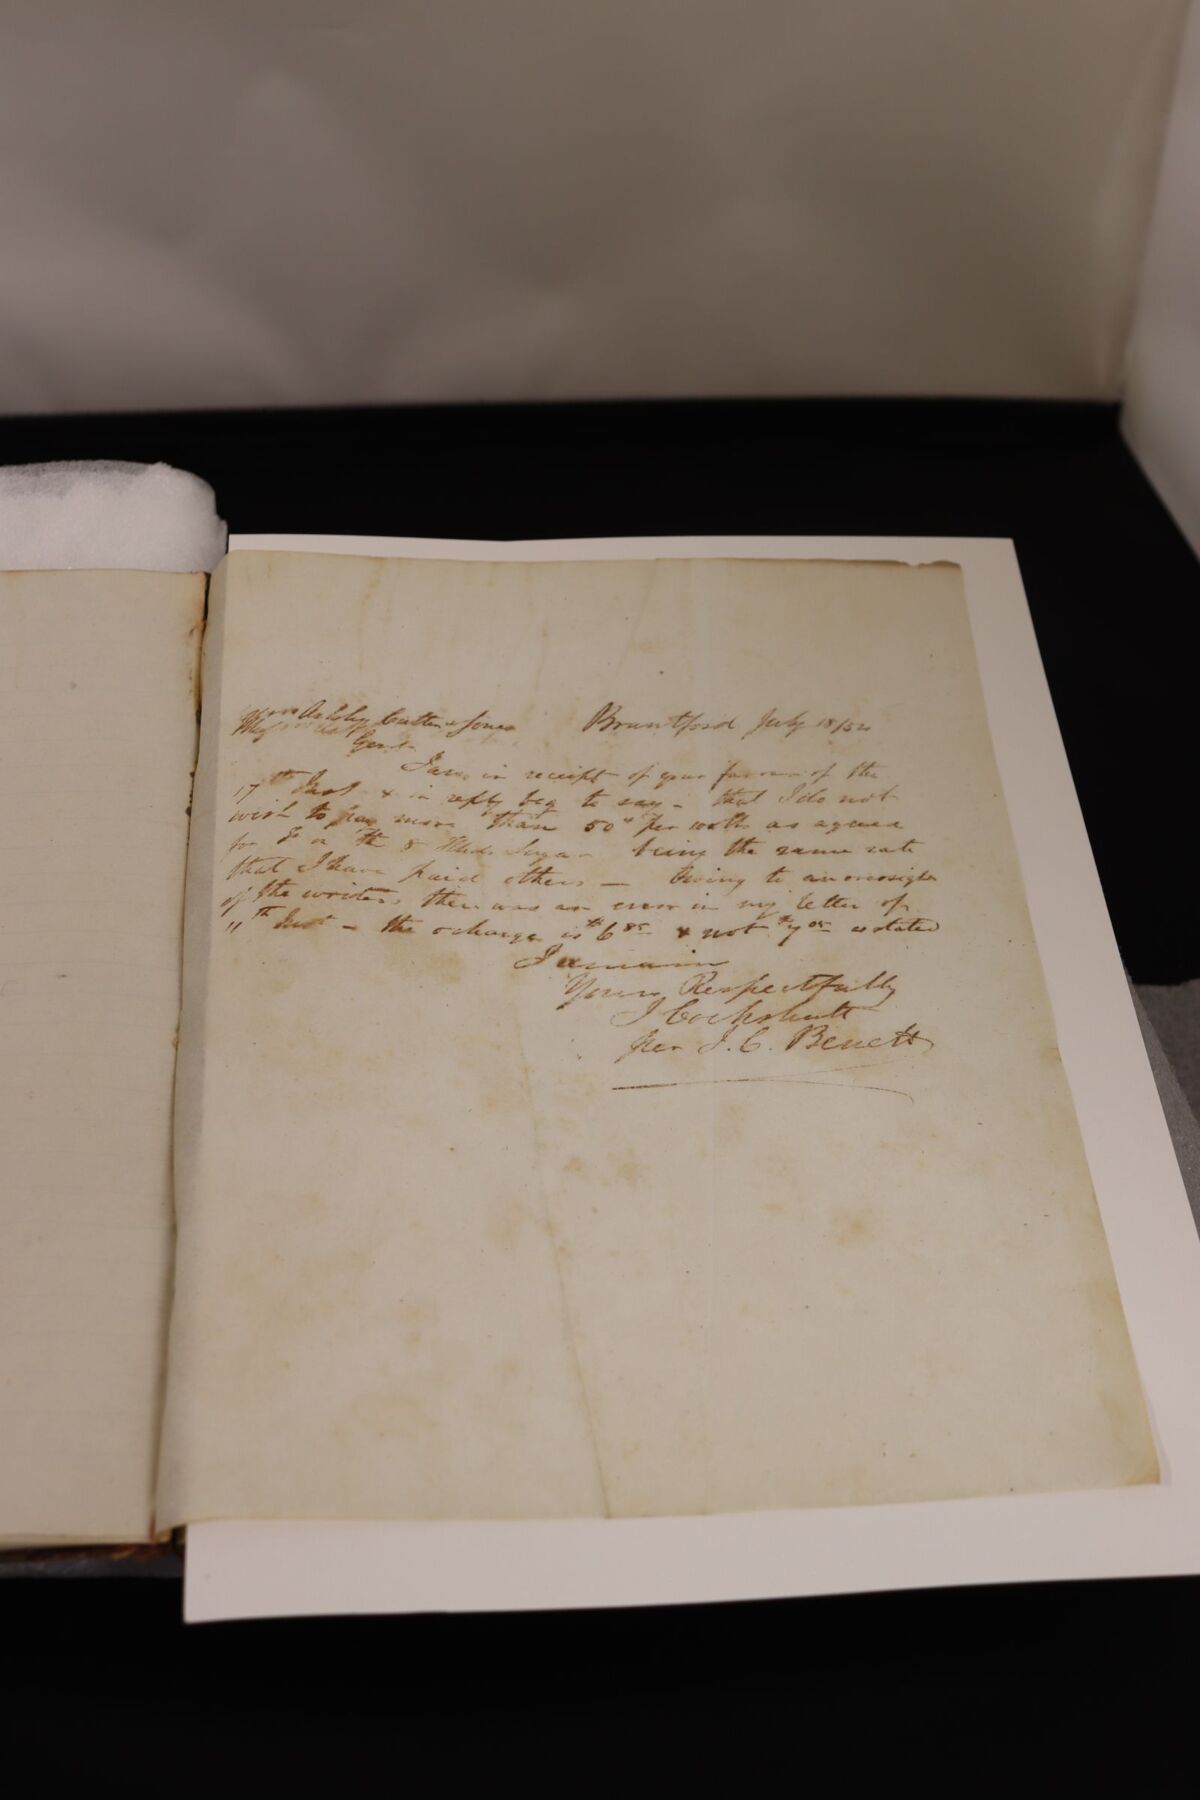 Brantford July 18/54
Gent
I am in receipt of your favour of the
17th Inst & in reply beg to say - that I do not
wish to pay more than 50" per as agreed
for & Sugar being the same rate
that I have paid others — Owing to an oversight
of the writers there was an error in my letter of
"th Inst - the charge is $6 85 & not $7 05 as stated
I remain
Yours Respectfully
I Cockshutt
per J. C. Benett